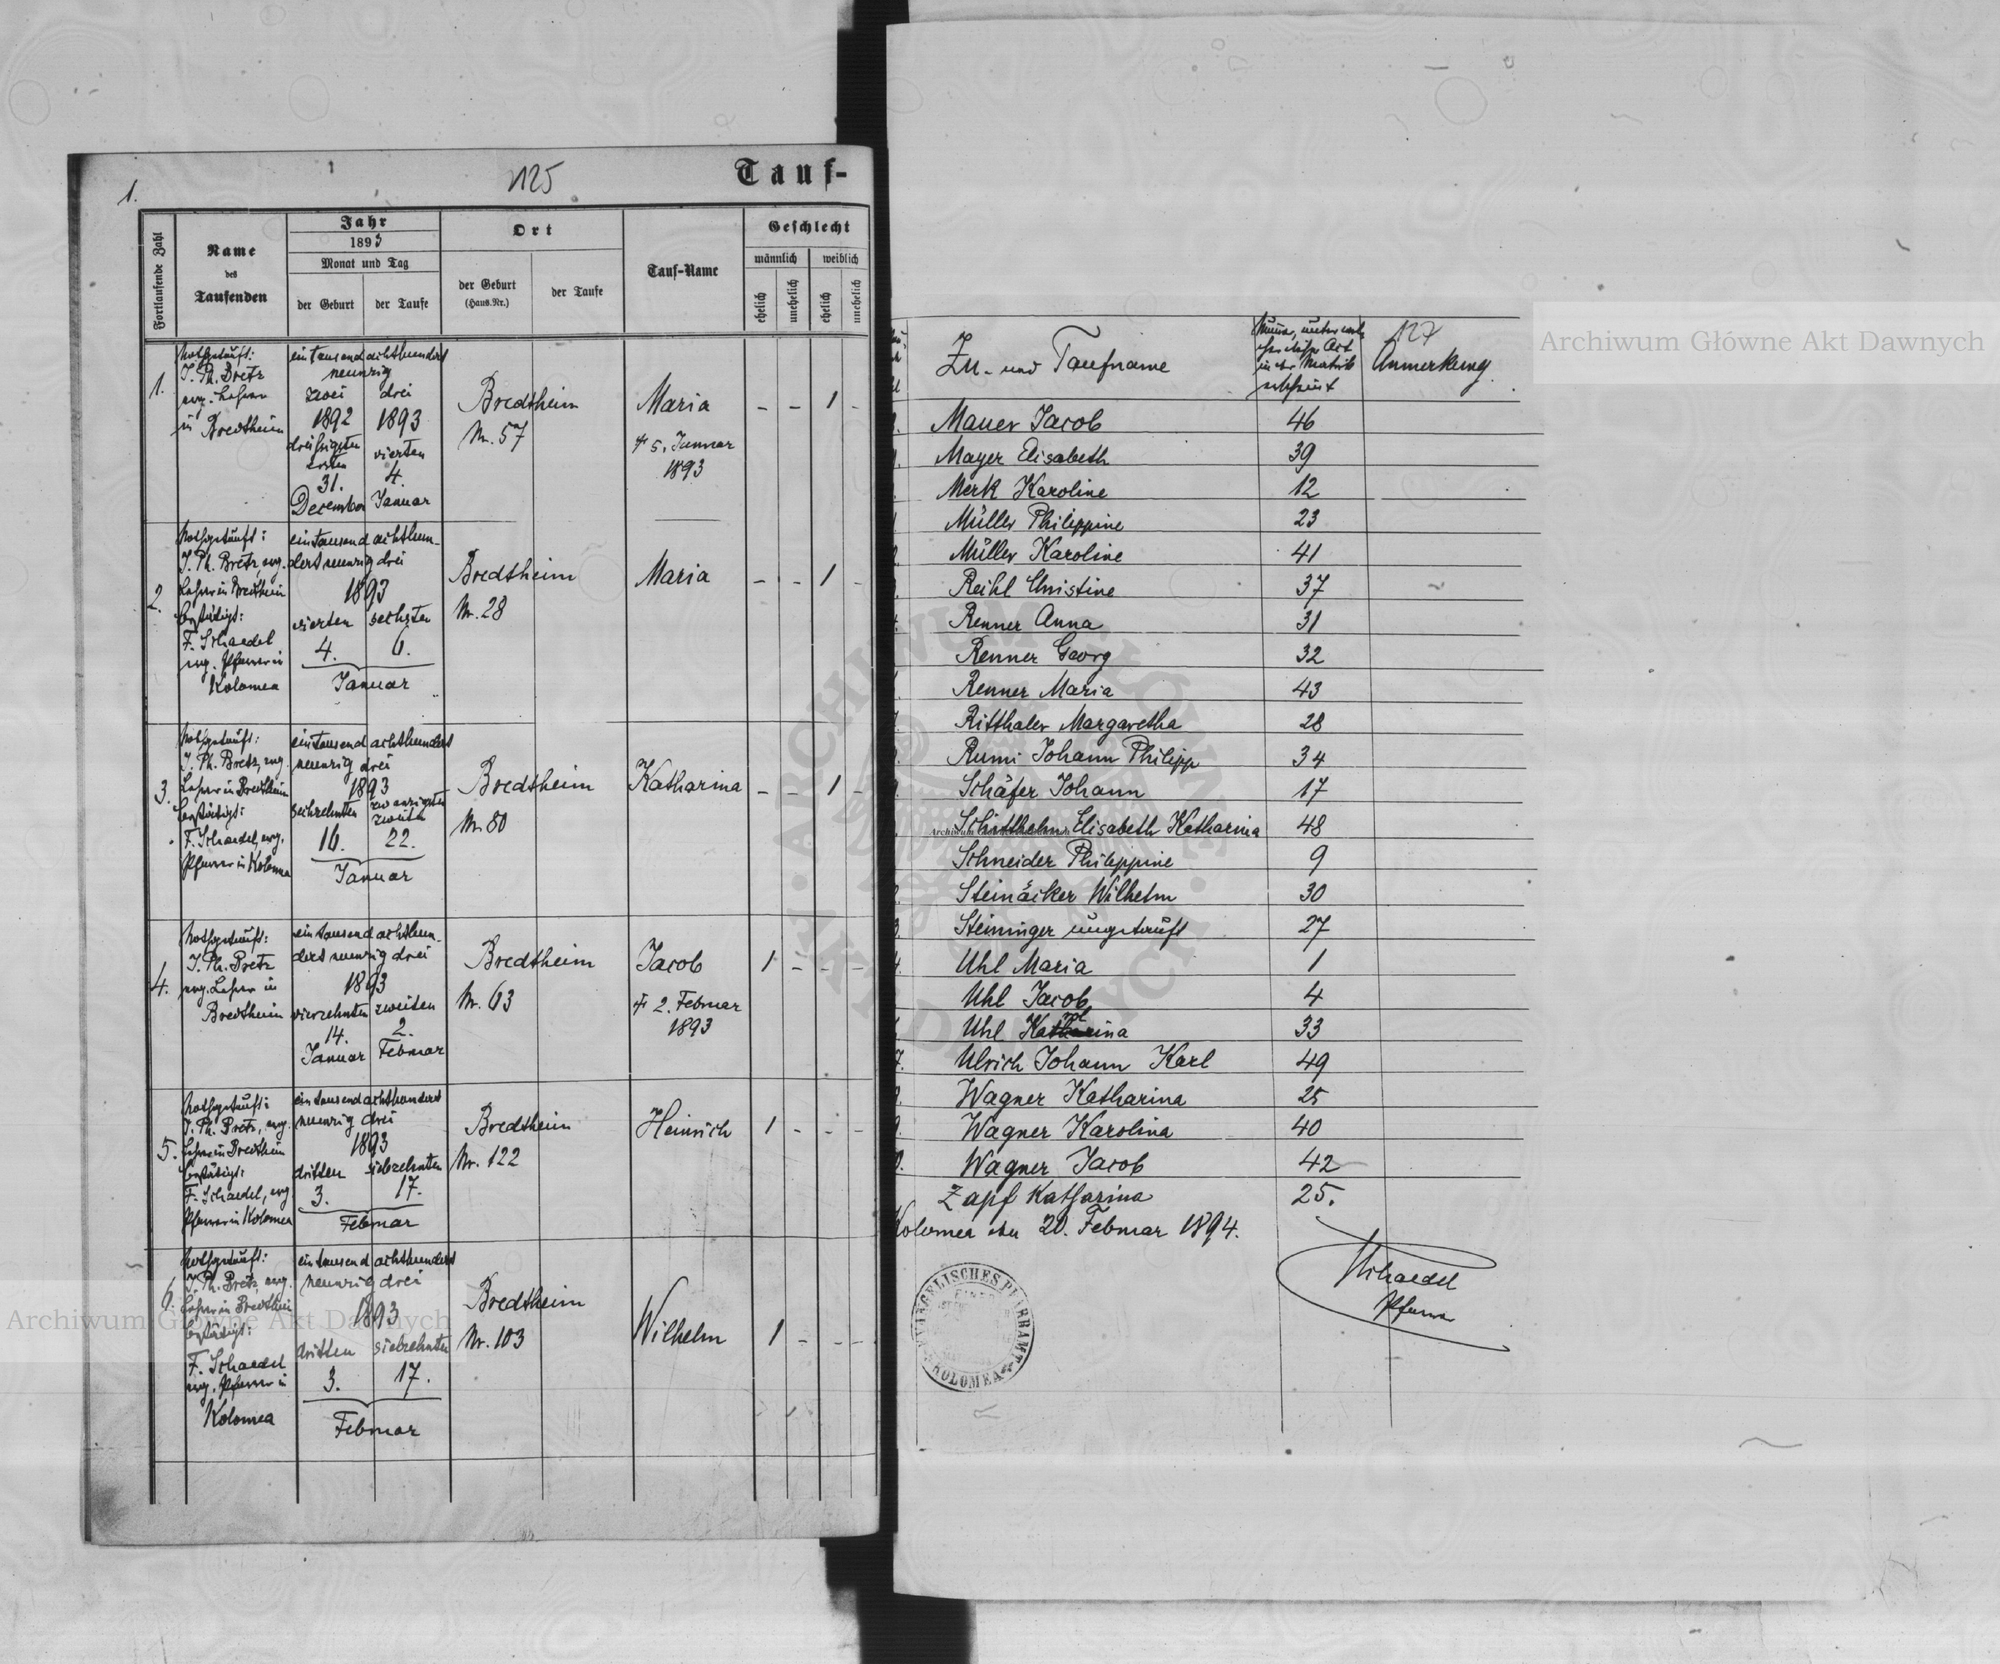 1.
1125
Tauf-
Fortlaufende Zahl
Name
des
Taufenden
Jahr
1893
Monat und Tag
der Geburt
der Taufe
Ort
der Geburt
(Haus.Nr.)
der Taufe
Tauf-Name
Geschlecht
männlich
weiblich
ehelich
unehelich
ehelich
unehelich
1.
Nothgetauft:
J. Ph. Bretz
evg. Lehrer
in Bredtheim
eintausend achthundert
neunzig
zwei
drei
1892
1893
dreißigsten
ersten
vierten
31.
4.
December
Januar
Bredtheim
Nr. 57
Maria
† 5. Januar
1893
- - 1 -
2.
Nothgetauft:
J. Ph. Bretz, evg.
Lehrer in Bredtheim
bestätigt:
F. Schaedel
evg. Pfarrer in
Kolomea
eintausend achthun-
dert neunzig drei
1893
vierten
sechsten
4.
6.
Januar
Bredtheim
Nr. 28
Maria
- - 1 -
3.
Nothgetauft:
J. Ph. Bretz, evg.
Lehrer in Bredtheim
bestätigt:
F. Schaedel, evg.
Pfarrer in Kolomea
eintausend achthundert
neunzig drei
1893
sechzehnten
zwanzigsten
zweiten
16.
22.
Januar
Bredtheim
Nr. 80
Katharina
- - 1 -
4.
Nothgetauft:
J. Ph. Bretz
evg. Lehrer in
Bredtheim
eintausend achthun-
dert neunzig drei
1893
vierzehnten
zweiten
14.
2.
Januar
Februar
Bredtheim
Nr. 63
Jacob
† 2. Februar
1893
1 - - -
5.
Nothgetauft:
J. Ph. Bretz, evg.
Lehrer in Bredtheim
bestätigt:
F. Schaedel, evg.
Pfarrer in Kolomea
eintausend achthundert
neunzig drei
1893
dritten
siebzehnten
3.
17.
Februar
Bredtheim
Nr. 122
Heinrich
1 - - -
6.
Nothgetauft:
J. Ph. Bretz, evg.
Lehrer in Bredtheim
bestätigt:
F. Schaedel
evg. Pfarrer in
Kolomea
eintausend achthundert
neunzig drei
1893
dritten
siebzehnten
3.
17.
Februar
Bredtheim
Nr. 103
Wilhelm
1 - - -
Zu- und Taufname
127
Anmerkung
Mauer Jacob 46
Mayer Elisabeth 39
Merk Karoline 12
Müller Philippine 23
Müller Karoline 41
Reihl Christine 37
Renner Anna 31
Renner Georg 32
Renner Maria 43
Ritthaler Margaretha 28
Rumi Johann Philipp 34
Schäfer Johann 17
Schitthelm Elisabeth Katharina 48
Schneider Philippine 9
Steinäcker Wilhelm 30
Steininger ungetauft 27
Uhl Maria 1
Uhl Jacob 4
Uhl Karolina 33
7. Ulrich Johann Karl 49
Wagner Katharina 25
Wagner Karolina 40
Wagner Jacob 42
Zapf Katharina 25.
Kolomea den 20. Februar 1894.
Schaedel
Pfarrer
EVANGELISCHES PFARRAMT
KOLOMEA
Archiwum Główne Akt Dawnych
Archiwum Główne Akt Dawnych
ARCHIWUM GŁÓWNE AKT DAWNYCH